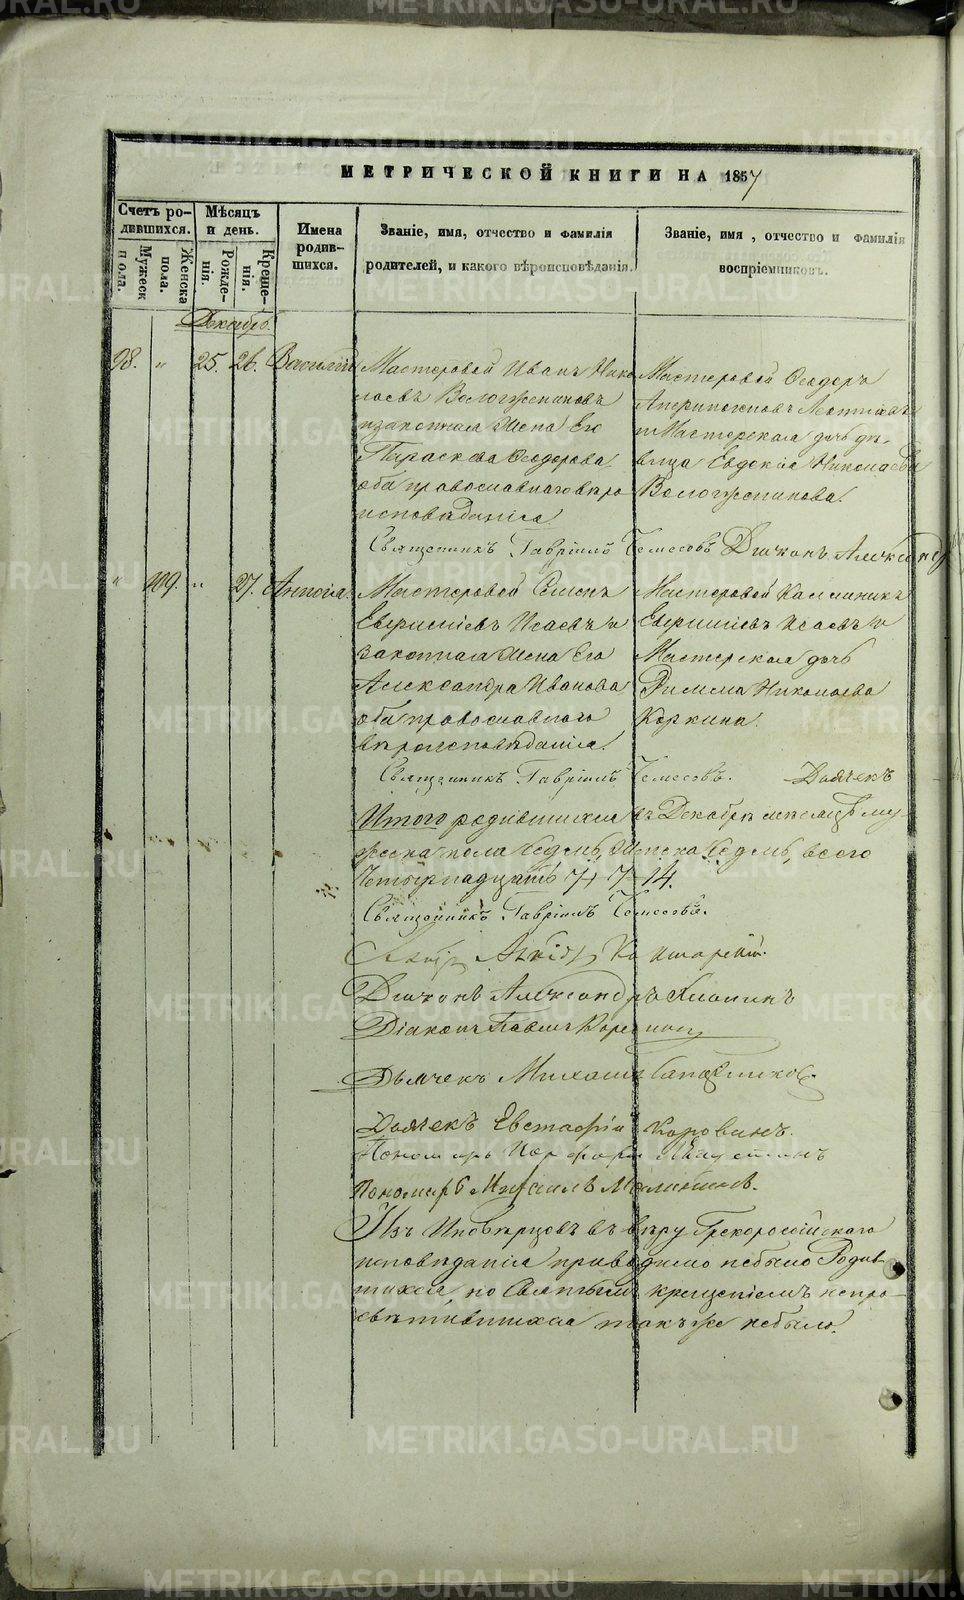 МЕТРИЧЕСКОЙ КНИГИ НА 1857
Счетъ ро-
дившихся.
Мужеск
пола.
Женска
пола.
Мѣсяцъ
и день.
Рожде-
нія.
Креще-
нія.
Имена
родив-
шихся.
Званіе, имя, отчество и фамилія
родителей, и какого вѣроисповѣданія.
Званіе, имя, отчество и фамилія
воспріемниковъ.
Декабрь
98. " 25. 26. Василій
Мастеровой Иванъ Нико
лаевъ Вологжениновъ
и законная жена Его
Параскева Феодорова
оба православнаго веро
исповѣданія
Мастеровой Феодоръ
и Мастерская дочь дѣ-
вица Евдокія Николаева
Вологженинова.
Священникъ Гавріилъ Дьяконъ Александр
" 109. " 27. Антонія.
Мастеровой Семенъ
Евфиміевъ Исаевъ и
законная жена Его
Александра Иванова
оба православного
вѣроисповѣданія.
Мастеровой Каллиникъ
Евфиміевъ Исаевъ и
Мастерская дочь
Николаева
Коркина.
Священникъ Гавріилъ Дьячекъ
Итого родившихся въ Декабрѣ месяцѣ му
жеска пола седмь, Женска седмь, всего
Четырнадцать 7+7=14.
Священникъ Гавріилъ
Дьяконъ Александръ
Діаконъ Павелъ
Дьячекъ Михаилъ
Дьячекъ Евстафій Коровинъ.
Пономарь
Пономарь Михаилъ
Изъ Иноверцовъ въ вѣру Грекоросійскаго
исповѣданія приводимо небыло Родив
шихся, но Святымъ крещеніемъ непро-
свѣтившихся такъже небыло.